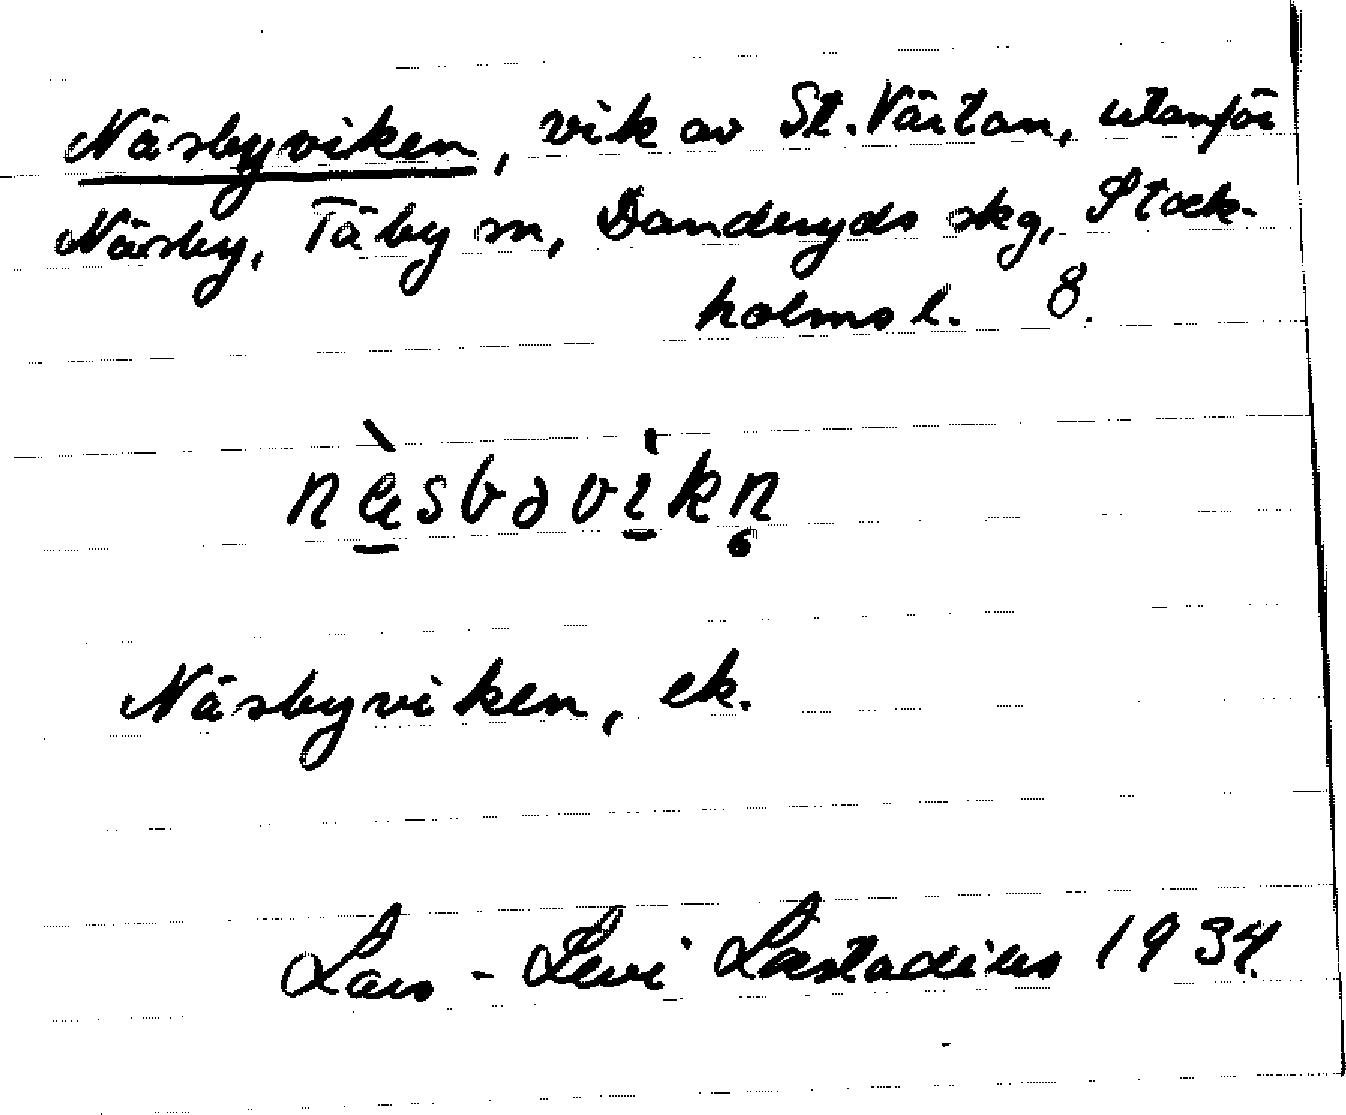 Näsbyviken, vik av St. Värtan, utanför
Näsby, Täby sn, Danderyds skg, Stock-
holms l. 8.
nä̀sbəvikn̥
Näsbyviken, ek.
Lars-Levi Læstadius 1934.